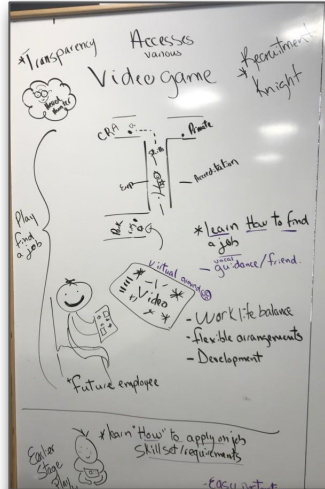 *Transparency
Accesses
various
Video game
*Recruitment
* Knight
CRA
Private
Accreditation
Play
find
a job
*learn How to find
a job
- vocal guidance/friend.
virtual around
Video
- Work life balance
- flexible arrangements
- Development
*future employee
Earlier
Stage
Play
*learn "How" to apply on job
Skill set/requirements